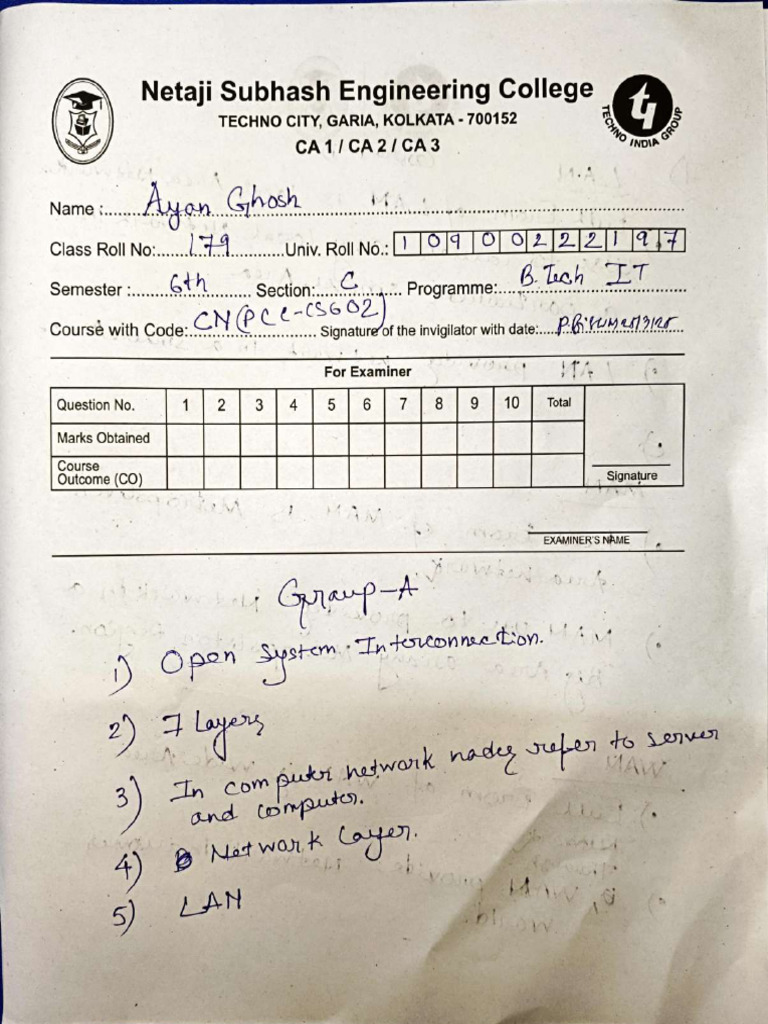 Netaji Subhash Engineering College
TECHNO CITY, GARIA, KOLKATA - 700152
CA 1 / CA 2 / CA 3
TECHNO INDIA GROUP
Name :Ayan Ghosh
Class Roll No:179 Univ. Roll No.: 10900222197
Semester :6th Section:C Programme:B.Tech IT
Course with Code:CN(PCC-CS602) Signature of the invigilator with date:
For Examiner
Question No. 1 2 3 4 5 6 7 8 9 10 Total
Marks Obtained
Course
Outcome (CO)
Signature
EXAMINER'S NAME
Group-A
1) Open System Interconnection.
2) 7 Layers
3) In computer network nodes refer to server
and computer.
4) Network Layer.
5) LAN